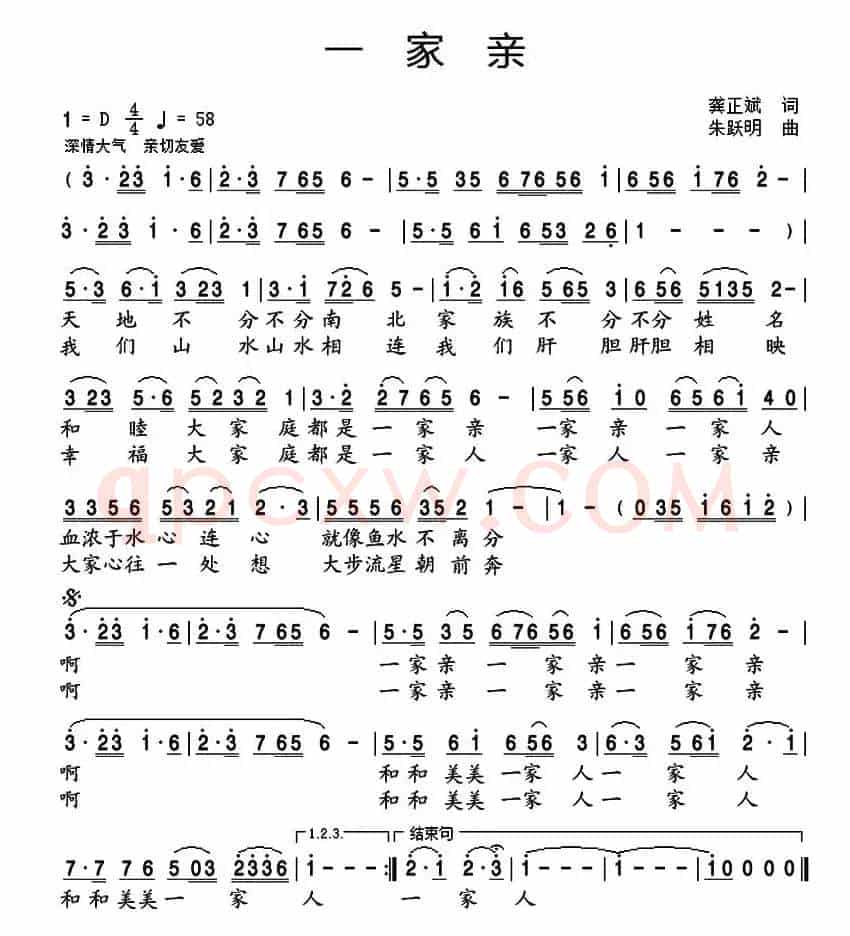 一 家 亲
1 = D 4/4 ♩ = 58
龚正斌 词
深情大气 亲切友爱
朱跃明 曲
( 3 · 23 1 · 6 | 2 · 3 7 65 6 - | 5 · 5 35 6 76 56 1 | 6 56 1 76 2 - |
3 · 23 1 · 6 | 2 · 3 7 65 6 - | 5 · 5 6 1 6 53 2 6 | 1 - - - ) |
5 · 3 6 · 1 3 23 1 | 3 · 1 72 6 5 - | 1 · 2 16 5 65 3 | 6 56 5135 2 - |
天 地 不 分 不 分 南 北 家 族 不 分 不 分 姓 名
我 们 山 水 山 水 相 连 我 们 肝 胆 肝 胆 相 映
3 23 5 · 6 5 2 3 2 1 | 3 · 2 2 7 6 5 6 - | 5 56 1 0 6 5 6 1 4 0 |
和 睦 大 家 庭 都 是 一 家 亲 一 家 亲 一 家 人
幸 福 大 家 庭 都 是 一 家 人 一 家 人 一 家 亲
qpcxw.COM
3 3 5 6 5 3 2 1 2 · 3 | 5 5 5 6 35 2 1 - | 1 - ( 0 35 1 6 1 2 ) |
血浓于水 心 连 心 就像鱼水 不 离 分
大家心往 一 处 想 大步流星 朝 前 奔
3 · 23 1 · 6 | 2 · 3 7 65 6 - | 5 · 5 3 5 6 76 56 1 | 6 56 1 76 2 - |
啊 一 家 亲 一 家 亲 一 家 亲
啊 一 家 亲 一 家 亲 一 家 亲
3 · 23 1 · 6 | 2 · 3 7 65 6 - | 5 · 5 6 1 6 56 3 | 6 · 3 5 61 2 · 1 |
啊 和 和 美 美 一 家 人 一 家 人
啊 和 和 美 美 一 家 人 一 家 人
1.2.3. 结束句
7 · 7 7 6 5 03 2336 | 1 - - - :| 2 · 1 2 · 3 | 1 - - - | 1 - - - | 1 0 0 0 0 ||
和 和 美 美 一 家 人 一 家 人